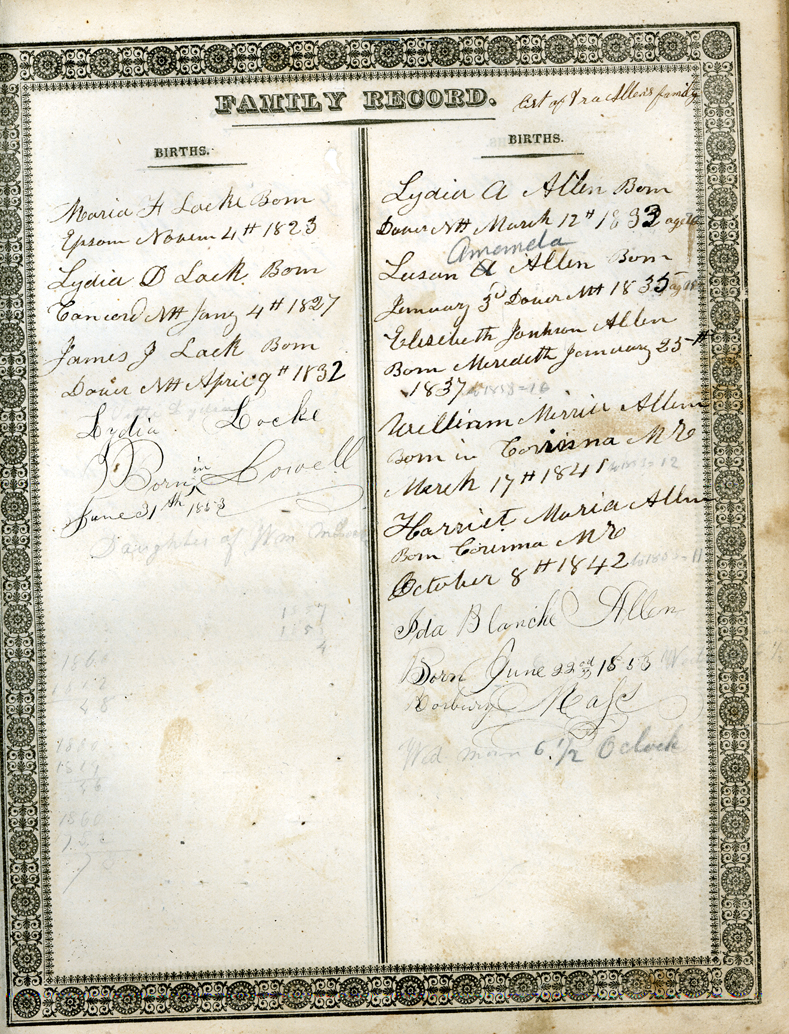 FAMILY RECORD.
of Ira Allen's family
BIRTHS.
Maria H Locke Born
Epsom Novem 4th 1823
Lydia D Lock. Born
Concord NH Jany 4th 1827
James J Lock Born
Dover NH April 9th 1832
Lydia Locke
Born in Lowell
June 31th 1853
Daughter of Wm
1860
48
1860
BIRTHS.
Lydia A Allen Born
Dover NH March 12th 1833
Amamda
Lusan A Allen Born
Jemuary 3d Dover NH 1835
Elesebeth Jonhson Allen
Born Meredeth Jemuary 25th
1837
William Merrill Allen
Born in Corinna ME
March 17th 1841
Harriet Maria Allen
Born Corinna ME
October 8th 1842
Ida Blanche Allen
Born June 22nd 1853
Roxbury Mass
Wed morn 6 1/2 Oclock